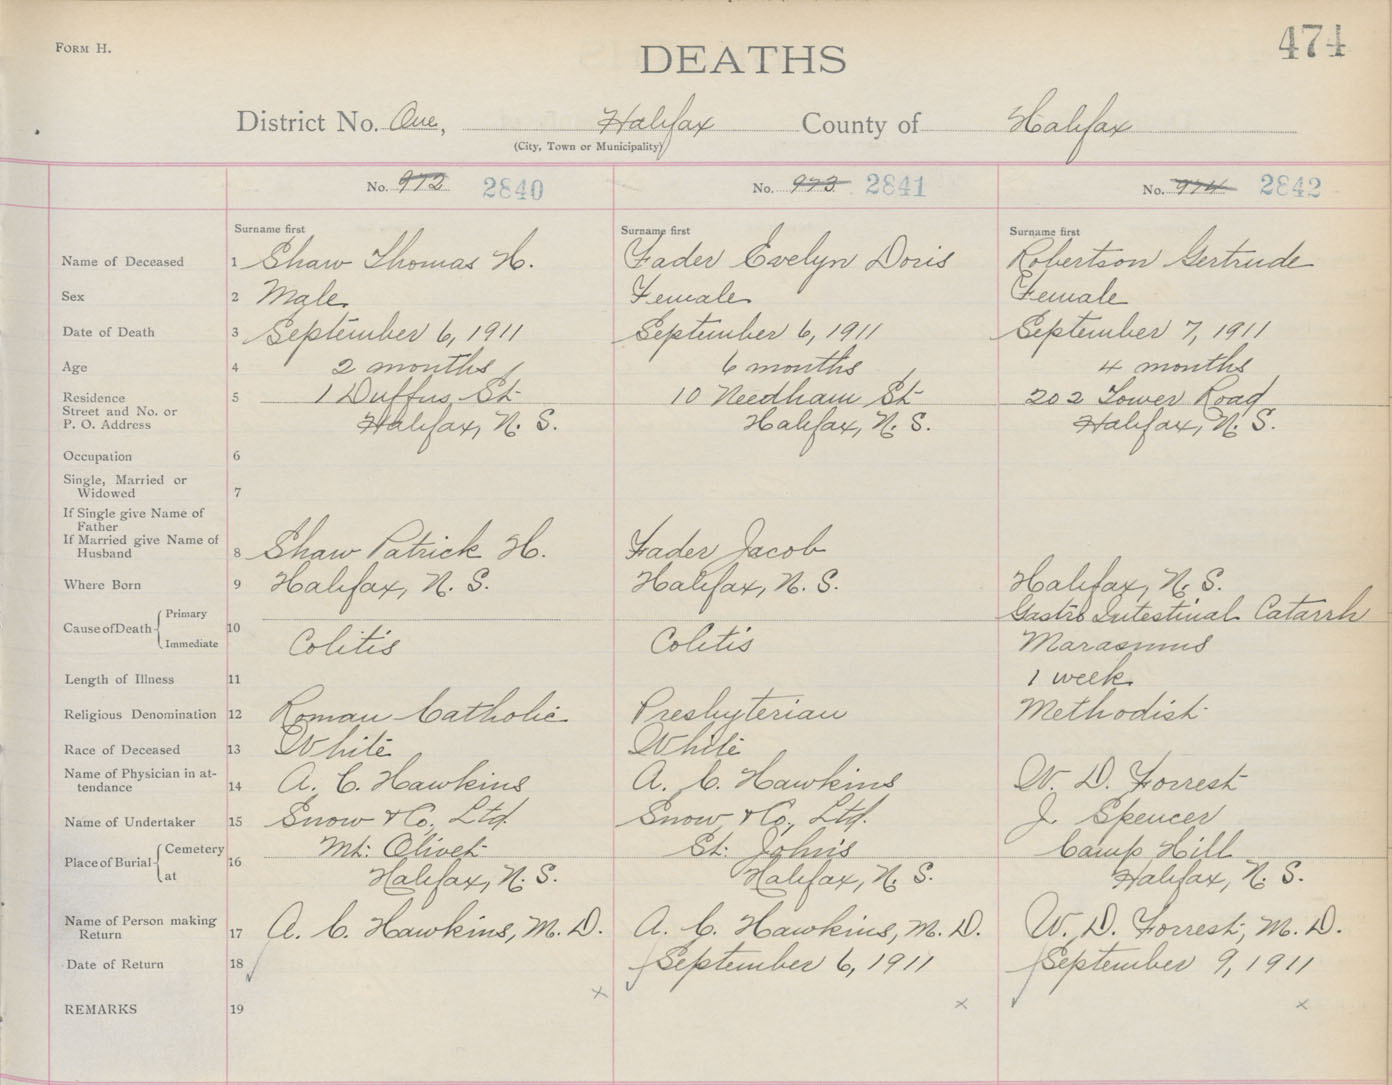 FORM H.
474
DEATHS
District No. One, Halifax County of Halifax
(City, Town or Municipality)
No. 972 2840 No. 973 2841 No. 974 2842
Surname first Surname first Surname first
Name of Deceased 1 Shaw Thomas H. Fader Evelyn Doris Robertson Gertrude
Sex 2 Male Female Female
Date of Death 3 September 6, 1911 September 6, 1911 September 7, 1911
Age 4 2 months 6 months 4 months
Residence 5 1 Duffus St. 10 Needham St. 202 Tower Road
Street and No. or
P. O. Address Halifax, N. S. Halifax, N. S. Halifax, N. S.
Occupation 6
Single, Married or
Widowed 7
If Single give Name of
Father
If Married give Name of
Husband 8 Shaw Patrick H. Fader Jacob
Where Born 9 Halifax, N. S. Halifax, N. S. Halifax, N. S.
Cause of Death Primary Gastro Intestinal Catarrh
10 Immediate Colitis Colitis Marasmus
Length of Illness 11 1 week
Religious Denomination 12 Roman Catholic Presbyterian Methodist
Race of Deceased 13 White White
Name of Physician in at-
tendance 14 A. C. Hawkins A. C. Hawkins W. D. Forrest
Name of Undertaker 15 Snow & Co., Ltd. Snow & Co., Ltd. J. Spencer
Place of Burial Cemetery 16 Mt. Olivet St. John's Camp Hill
at Halifax, N. S. Halifax, N. S. Halifax, N. S.
Name of Person making
Return 17 A. C. Hawkins, M. D. A. C. Hawkins, M. D. W. D. Forrest, M. D.
Date of Return 18 September 6, 1911 September 9, 1911
x x x
REMARKS 19